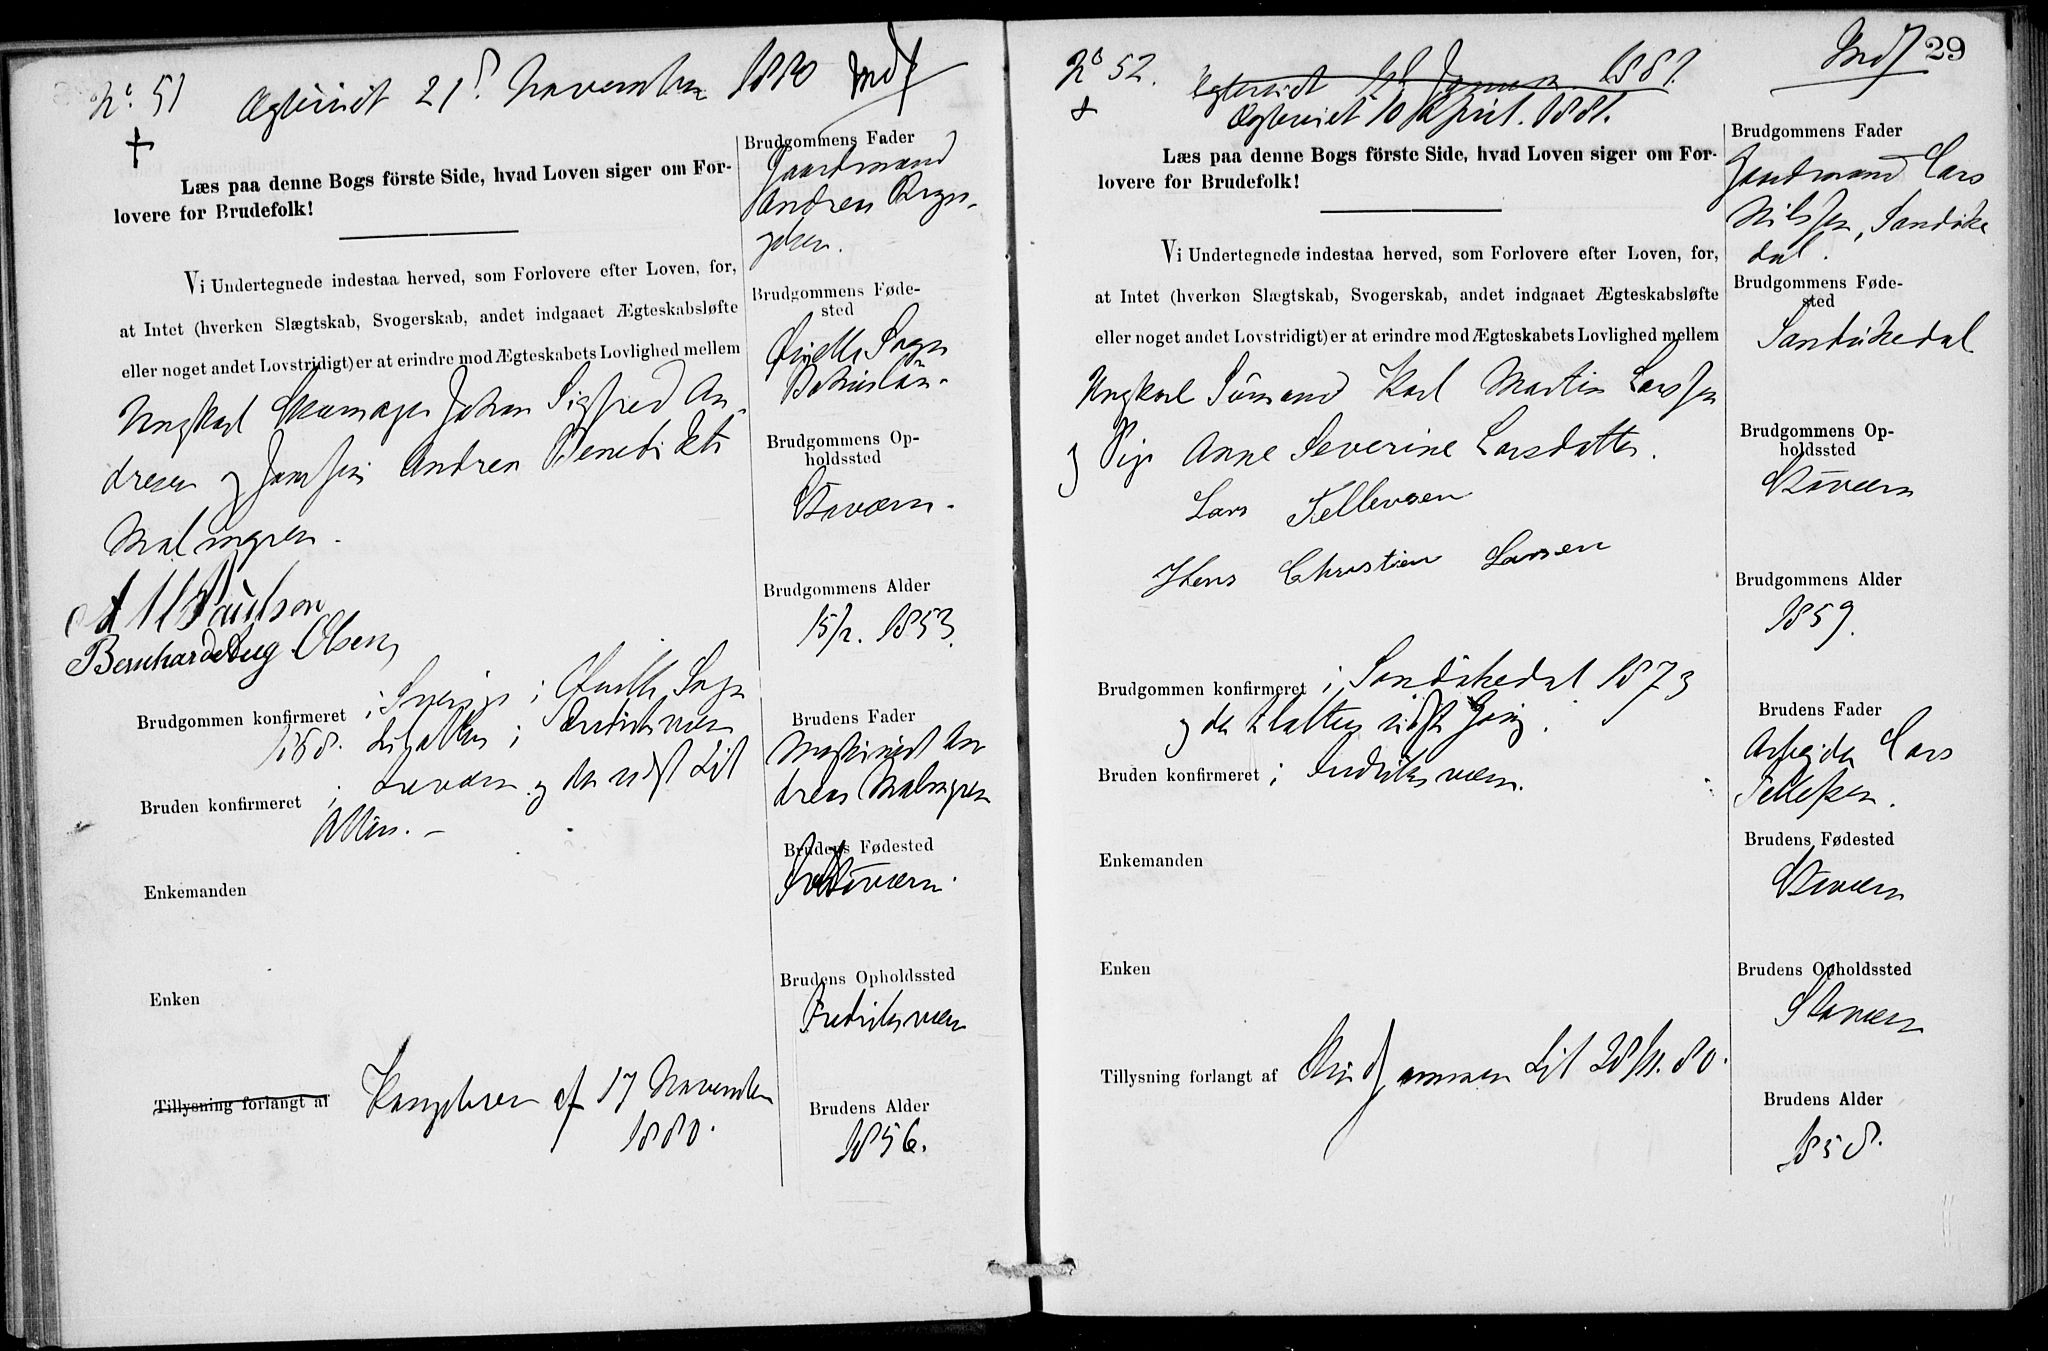 No. 51 Ægteviet 21de November 1880 Indf
Læs paa denne Bogs förste Side, hvad Loven siger om For-
lovere for Brudefolk!
Vi Undertegnede indestaa herved, som Forlovere efter Loven, for,
at Intet (hverken Slægtskab, Svogerskab, andet indgaaet Ægteskabsløfte
eller noget andet Lovstridigt) er at erindre mod Ægteskabets Lovlighed mellem
Ungkarl Skomager Johan Sigfred An-
dresen og Jomfru Andrea Benedikte
Malmgren.
Paulson
Bernhard Olsen
Brudgommen konfirmeret i Sverige i Sogn
1868.
Bruden konfirmeret i og der sidst til
Alters. -
Enkemanden
Enken
Tillysning forlangt af af 17 November
1880.
Brudgommens Fader
Gaardmand
Andreas
BrudgommensFøde-
sted
Sogn
Brudgommens Op-
holdssted
Staværn.
Brudgommens Alder
15/2. 1853.
Brudens Fader
Maskinist An
dreas Malmgren
Brudens Fødested
Staværn.
Brudens Opholdssted
Fredriksværn
Brudens Alder
1856.
No 52. Ægteviet 1881. Indf 29
Ægteviet 10 April. 1881.
Læs paa denne Bogs förste Side, hvad Loven siger om For-
lovere for Brudefolk!
Vi Undertegnede indestaa herved, som Forlovere efter Loven, for,
at Intet (hverken Slægtskab, Svogerskab, andet indgaaet Ægteskabsløfte
eller noget andet Lovstridigt) er at erindre mod Ægteskabets Lovlighed mellem
Ungkarl Sømand Karl Martin Larssen
og Pige Anne Severine Larsdatter.
Lars Tellevsen
Hans Christian Larsen
Brudgommen konfirmeret i Sandøkedal 1873
og der til alters sidste Gang.
Bruden konfirmeret i Fredriksværn.
Enkemanden
Enken
Tillysning forlangt af Brudgommen til 28/11. 80.
Brudgommens Fader
Gaardmand Lars
Nilssen, Sandøke
dal.
Brudgommens Føde-
sted
Sandøkedal
Brudgommens Op-
holdssted
Staværn
Brudgommens Alder
1859.
Brudens Fader
Arbejder Lars
Tellefsen.
Brudens Fødested
Staværn
Brudens Opholdssted
Staværn
Brudens Alder
1858.